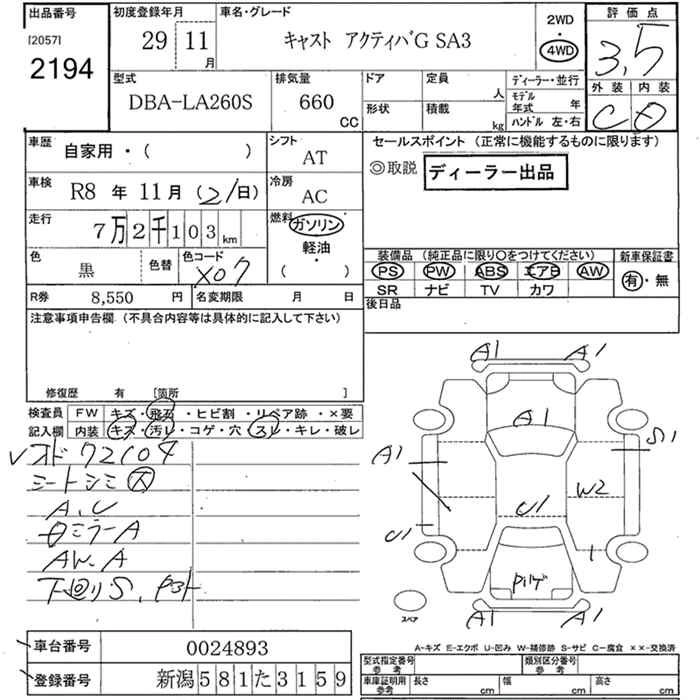 出品番号
[2057]
2194
初度登録年月
29 11
月
車名・グレード
キャスト アクティバG SA3
2WD
・
4WD
評価点
3,5
外装 内装
C D
型式
DBA-LA260S
排気量
660
CC
ドア
定員
人
形状
積載
kg
ディーラー・並行
モデル
年式 年
ハンドル 左・右
車歴
自家用・( )
シフト
AT
車検
R8 年 11月 (21日)
冷房
AC
走行
7万2千103 km
燃料
ガソリン
・
軽油
・
( )
色
黒
色替
色コード
X07
R券 8,550 円
名変期限 月 日
セールスポイント (正常に機能するものに限ります)
◎取説 ディーラー出品
装備品 (純正品に限り〇をつけてください)
新車保証書
PS PW ABS エアB AW
有・無
SR ナビ TV カワ
後日品
注意事項申告欄(不具合内容等は具体的に記入して下さい)
修復歴 有 [箇所 ]
検査員
記入欄
FW キズ・飛石・ヒビ割・リペア跡・×要
内装 キズ・汚レ・コゲ・穴・スレ・キレ・破レ
レオド 72104
シートシミ 大
A、U
ミラーA
AW、A
下廻りS、
A1 A1
A1
A1
S1
W2
U1
U1
A1 A1
スペア
A-キズ E-エクボ U-凹み W-補修跡 S-サビ C-腐食 ××-交換済
車台番号 0024893
登録番号 新潟581た3159
型式指定番号
参考
類別区分番号
参考
車庫証明用
参考
長さ cm
幅 cm
高さ cm